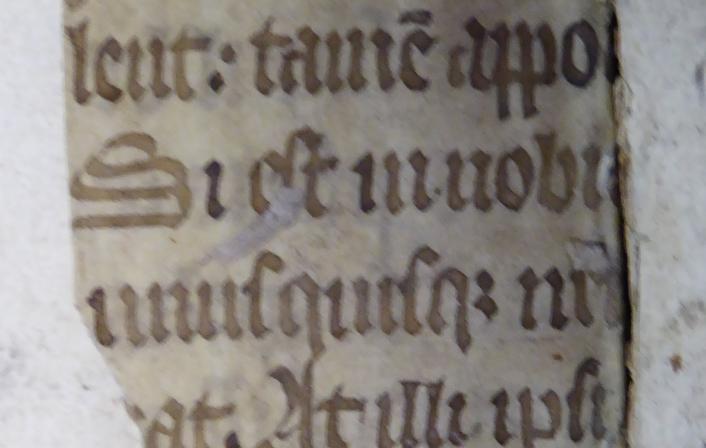 lent: tamē appo
Si est in nobi
unusquisq; nr
at. At illi ipsi